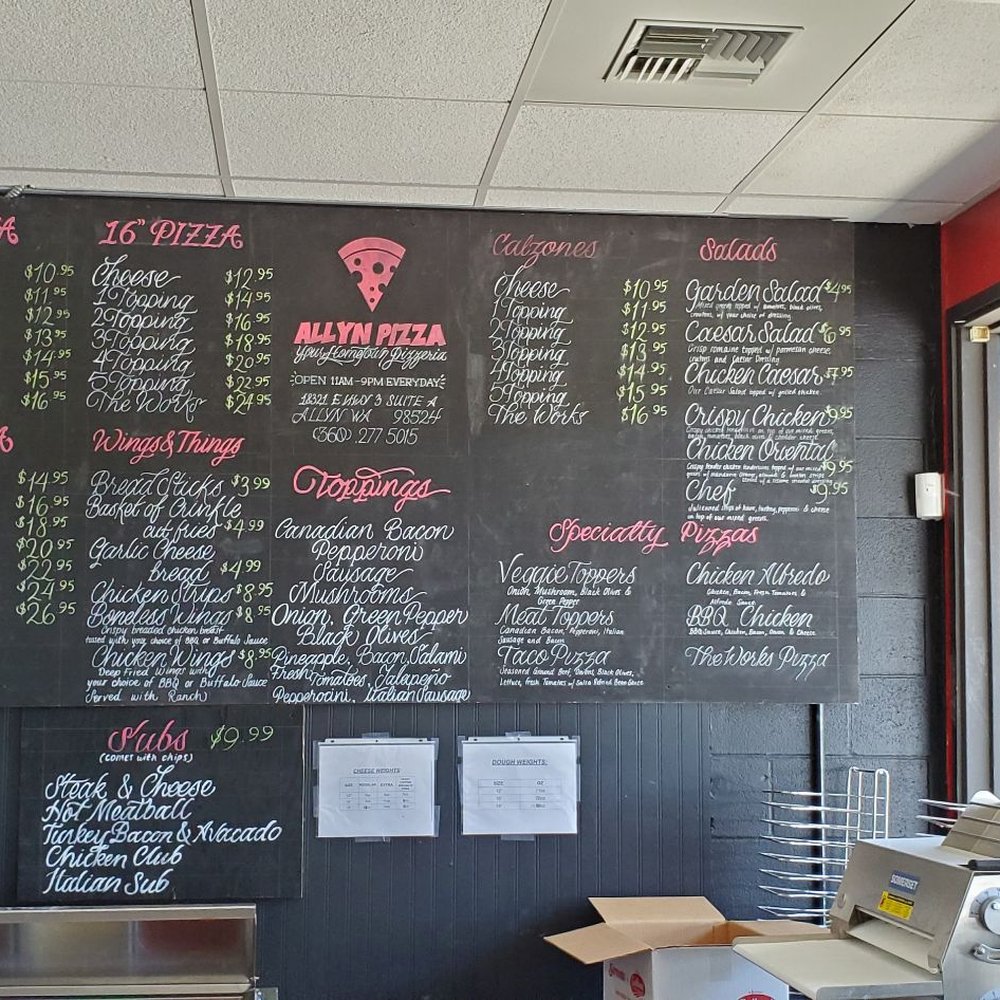 A
$10.95
$11.95
$12.95
$13.95
$14.95
$15.95
$16.95
A
$14.95
$16.95
$18.95
$20.95
$22.95
$24.95
$26.95
16" PIZZA
Cheese $12.95
1 Topping $14.95
2 Topping $16.95
3 Topping $18.95
4 Topping $20.95
5 Topping $22.95
The Works $24.95
Wings & Things
Bread Sticks $3.99
Basket of Crinkle
cut fries $4.99
Garlic Cheese
bread $4.99
Chicken Strips $8.95
Boneless Wings $8.95
Crispy breaded chicken breast
tossed with your choice of BBQ or Buffalo Sauce
Chicken Wings $8.95
Deep Fried Wings with
your choice of BBQ or Buffalo Sauce
Served with Ranch
ALLYN PIZZA
Your Hometown Pizzeria
OPEN 11AM-9PM EVERYDAY
18321 E HWY 3 SUITE A
ALLYN WA 98524
(360) 277 5015
Toppings
Canadian Bacon
Pepperoni
Sausage
Mushrooms
Onion, Green Pepper
Black Olives
Pineapple, Bacon, Salami
Fresh Tomatoes, Jalapeno
Pepperocini, Italian Sausage
Calzones
Cheese $10.95
1 Topping $11.95
2 Topping $12.95
3 Topping $13.95
4 Topping $14.95
5 Topping $15.95
The Works $16.95
Salads
Garden Salad $4.95
Mixed greens topped w/ tomatoes, black olives,
croutons, w/ your choice of dressing
Caesar Salad $6.95
Crisp romaine topped w/ parmesan cheese
croutons and Caesar Dressing
Chicken Caesar $7.95
Our Caesar Salad topped w/ grilled chicken.
Crispy Chicken $9.95
Crispy chicken tenderloins on top of our mixed greens,
bacon, tomatoes, black olive & cheddar cheese
Chicken Oriental
$9.95
Crispy tender chicken tenderloins topped w/ our mixed
greens w/ mandarine orange, almonds &
Chef $9.95
Julienned strips of ham, turkey, pepperoni & cheese
on top of our mixed greens.
Specialty Pizzas
Veggie Toppers
Onion, Mushroom, Black Olives &
Green Pepper
Meat Toppers
Canadian Bacon, Pepperoni, Italian
Sausage and Bacon
Taco Pizza
Seasoned Ground Beef, Onions, Black Olives,
Lettuce, Fresh Tomatoes w/ Salsa Refried Bean Sauce
Chicken Alfredo
Chicken, Bacon, Fresh Tomatoes &
Alfredo Sauce
BBQ Chicken
BBQ Sauce, Chicken, Bacon, Onion & Cheese
The Works Pizza
Subs $9.99
(comes with chips)
Steak & Cheese
Hot Meatball
Turkey Bacon & Avacado
Chicken Club
Italian Sub
CHEESE WEIGHTS
SIZE REGULAR EXTRA
DOUGH WEIGHTS:
SIZE OZ
SOMERSET